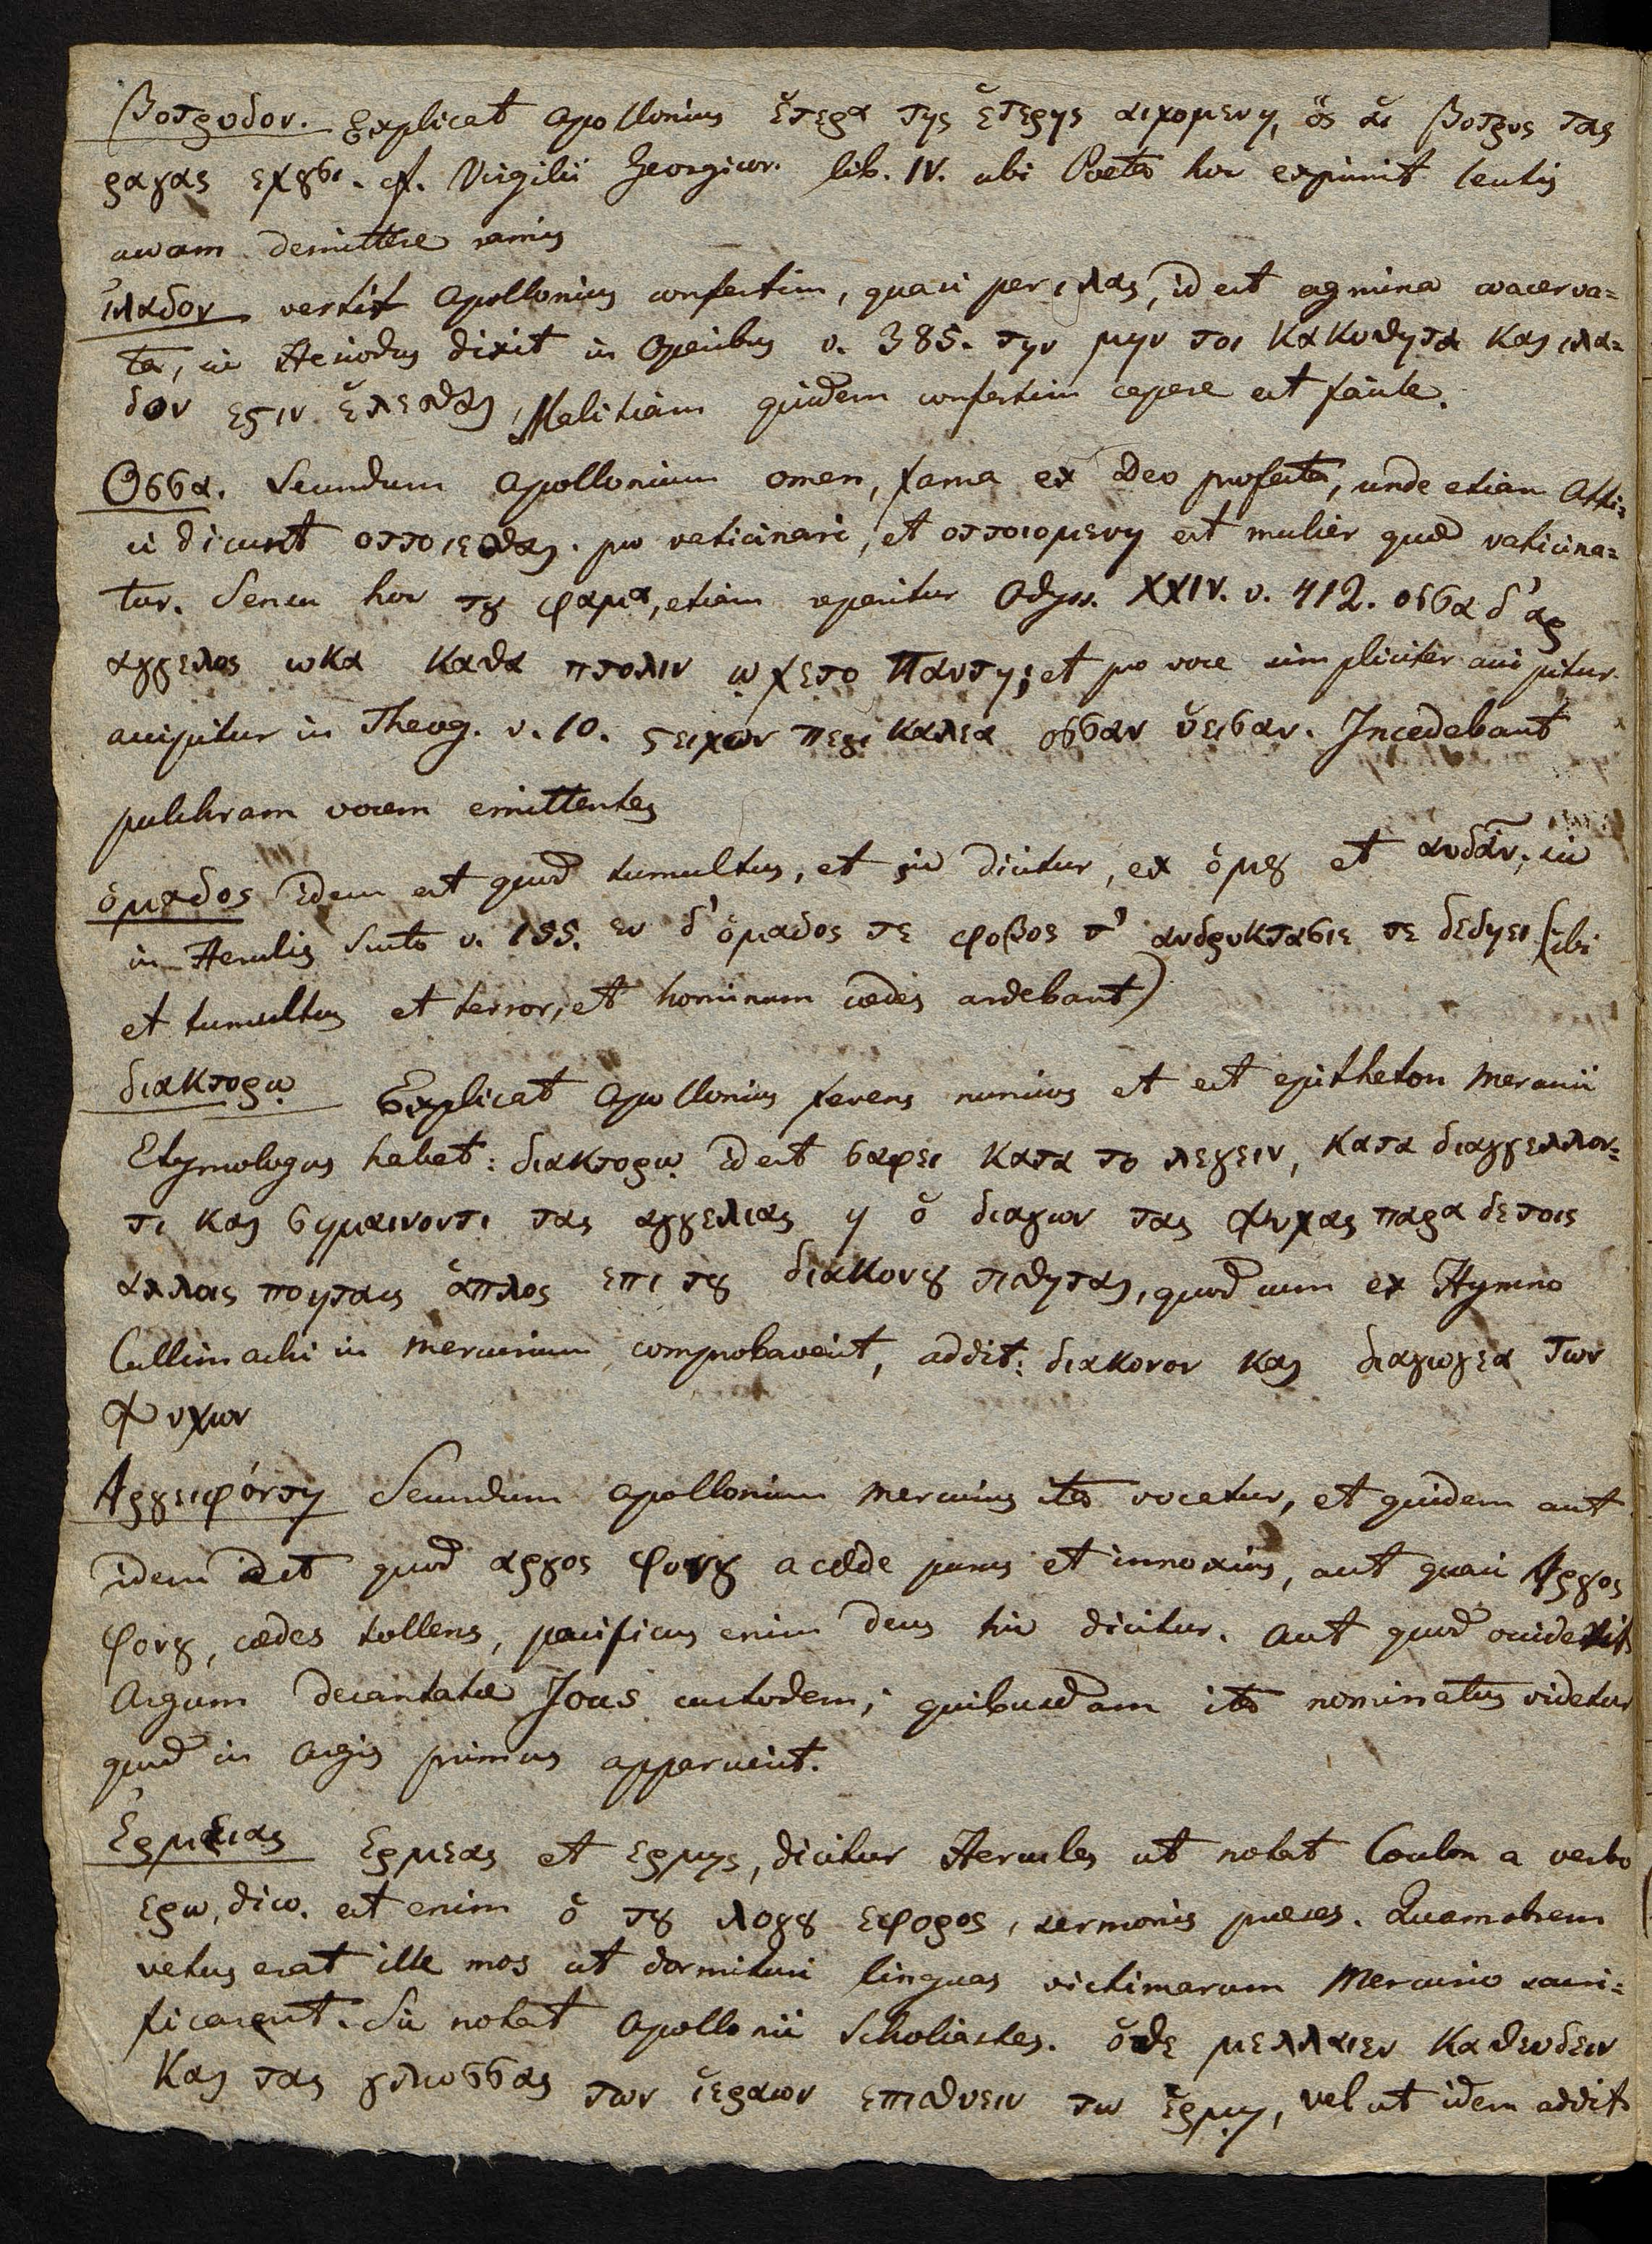 Βοτρυδον. Explicat Apollonius ἑτερα της ἑτερης αιχομενη, ὁς ἁι Βοτρυς τας
ραγας εχȣσι. cf. Virgilii Georgicor. lib. IV. ubi Poeta hoc exprimit lentis
uvam demittere ramis
ἰλαδον vertit Apollonius confertim, quasi per ιλας, id est agmina coacerva=
ta, sic Hesiodus dixit in Operibus v. 385. την μην τοι κακοθητα και ιλα=
δον εςιν ἑλεσθαι, Malitiam quidem confertim capere est facile.
Οσσα. Secundum Apollonium omen, fama ex Deo profecta, unde etiam Atti=
ci dicunt οττοιεσθαι. pro vaticinari, et οττοιομενη est mulier quae vaticina=
tur. Sensu hoc τȣ φαμα, etiam reperitur Odyss. XXIV. v. 412. οσσα δ' αρ
αγγελος ωκα καθα πτολιν ῳχετο παντη; et pro voce simpliciter accipitur
accipitur in Theog. v. 10. ςειχων περι καλεα οσσαν ὑεισαν. Incedebant
pulchram vocem emittentes
ὁμαδος idem est quod tumultus, et sic dicitur, ex ὁμȣ et αυδᾶν, sic
in Herculis Scuto v. 155. εν δ' ὁμαδος τε φοβος τ' ανδροκτασιε τε δεδηει (ibi
et tumultus et terror, et hominum caedes ardebant)
διακτορῳ Explicat Apollonius ferens nuncius et est epitheton Mercurii
Etymologus habet: διακτορῳ id est σαφει κατα το λεγειν, κατα διαγγελλον=
τι και σημαινοντι τας αγγελιας η ὁ διαγων τας ψυχας παρα δε τοις
αλλοις ποιηταις ἁπλος επι τȣ διακονȣ τιθηται, quod cum ex Hymno
Callimachi in Mercurium comprobaverit, addit: διακονον και διαγωγεα των
ψυχων
Αργειφόντη Secundum Apollonium Mercurius ita vocatur, et quidem aut
idem est quod αργος φονȣ a caede purus et innoxius, aut quasi Αργος
φονȣ, caedes tollens, pacificus enim deus hic dicitur. Aut quod occiderit
Argum decantatae Jous custodem; quibusdam ita nominatus videtur
quod in Argis primus apparuerit.
Ἑρμειας Ερμεας et Ερμης, dicitur Hercules ut notat Coulon a verbo
ερω, dico. est enim ὁ τȣ λογȣ εφορος, sermonis praeses. Quamobrem
vetus erat ille mos ut dormituri linguas victimarum Mercurio sacri=
ficarent. Sic notat Apollonii Scholiastes. ὁτε μελλαιεν καθευδειν
και τας γλωσσας των ἱεραιων επιθυειν τω Ἑρμῃ, vel ut idem addit